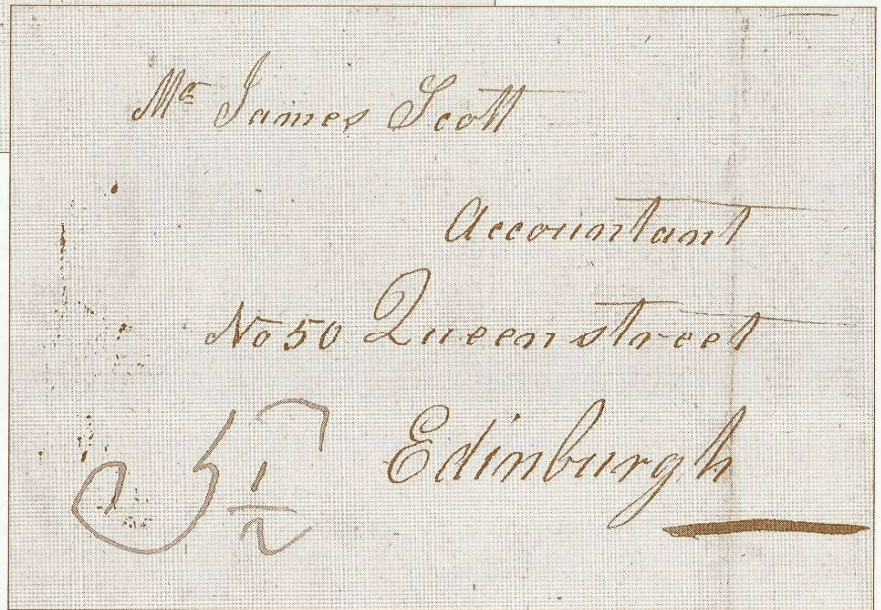 Mr James Scott
Accountant
No 50 Queen street
Edinburgh
5 1/2